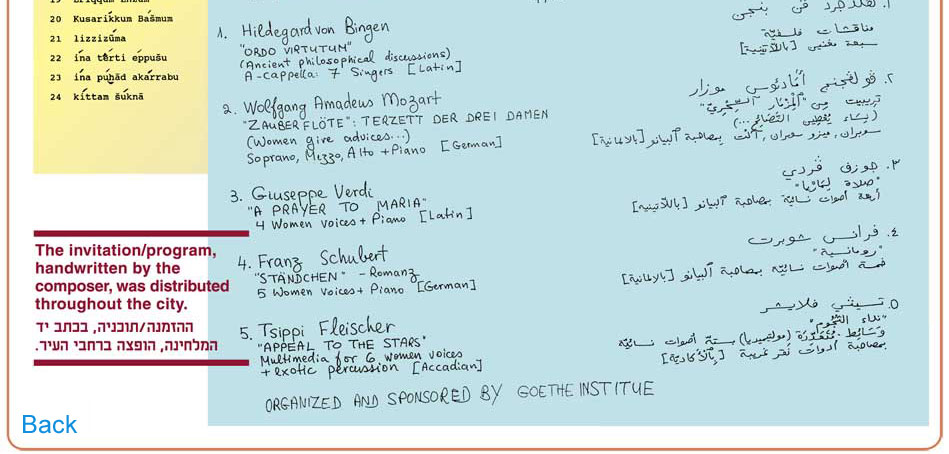 20 Kusarikkum Bašmum
21 lizzizūma
22 ina têrti eppušu
23 ina puhād akarrabu
24 kittam šuknā
1. Hildegard von Bingen
"ORDO VIRTUTUM"
(Ancient philosophical discussions)
A-cappella: 7 Singers [Latin]
2. Wolfgang Amadeus Mozart
"ZAUBERFLÖTE": TERZETT DER DREI DAMEN
(Women give advices...)
Soprano, Mezzo, Alto + Piano [German]
3. Giuseppe Verdi
"A PRAYER TO MARIA"
4 Women Voices + Piano [Latin]
4. Franz Schubert
"STÄNDCHEN" - Romanz
5 Women Voices + Piano [German]
5. Tsippi Fleischer
"APPEAL TO THE STARS"
Multimedia for 6 women voices
+ exotic percussion [Accadian]
مناقشات فلسفيّة
سبعة مغنين [باللاتينية]
٢. ڤولفجنج أمادئوس موزار
تريبيت من "المزمار السحري"
(نساء يعطين النصائح...)
سوبران, ميزو سوبران, ألت بمصاحبة البيانو [بالالمانية]
٣. جوزف ڤردي
"صلاة لماريا"
أربعة أصوات نسائيّة بمصاحبة البيانو [باللاتينيه]
٤. فرانس شوبرت
"رومانسية"
خمسة أصوات نسائيّه بمصاحبة البيانو [بالالمانية]
٥. تسيڤي فلايشر
"نداء النجوم"
وسائط متعدّدة (مولتيميديا) بستة أصوات نسائيّة
بمصاحبة أدوات نقر غريبة [بالأكاديّة]
ORGANIZED AND SPONSORED BY GOETHE INSTITUE
The invitation/program,
handwritten by the
composer, was distributed
throughout the city.
ההזמנה/תוכניה, בכתב יד
המלחינה, הופצה ברחבי העיר.
Back